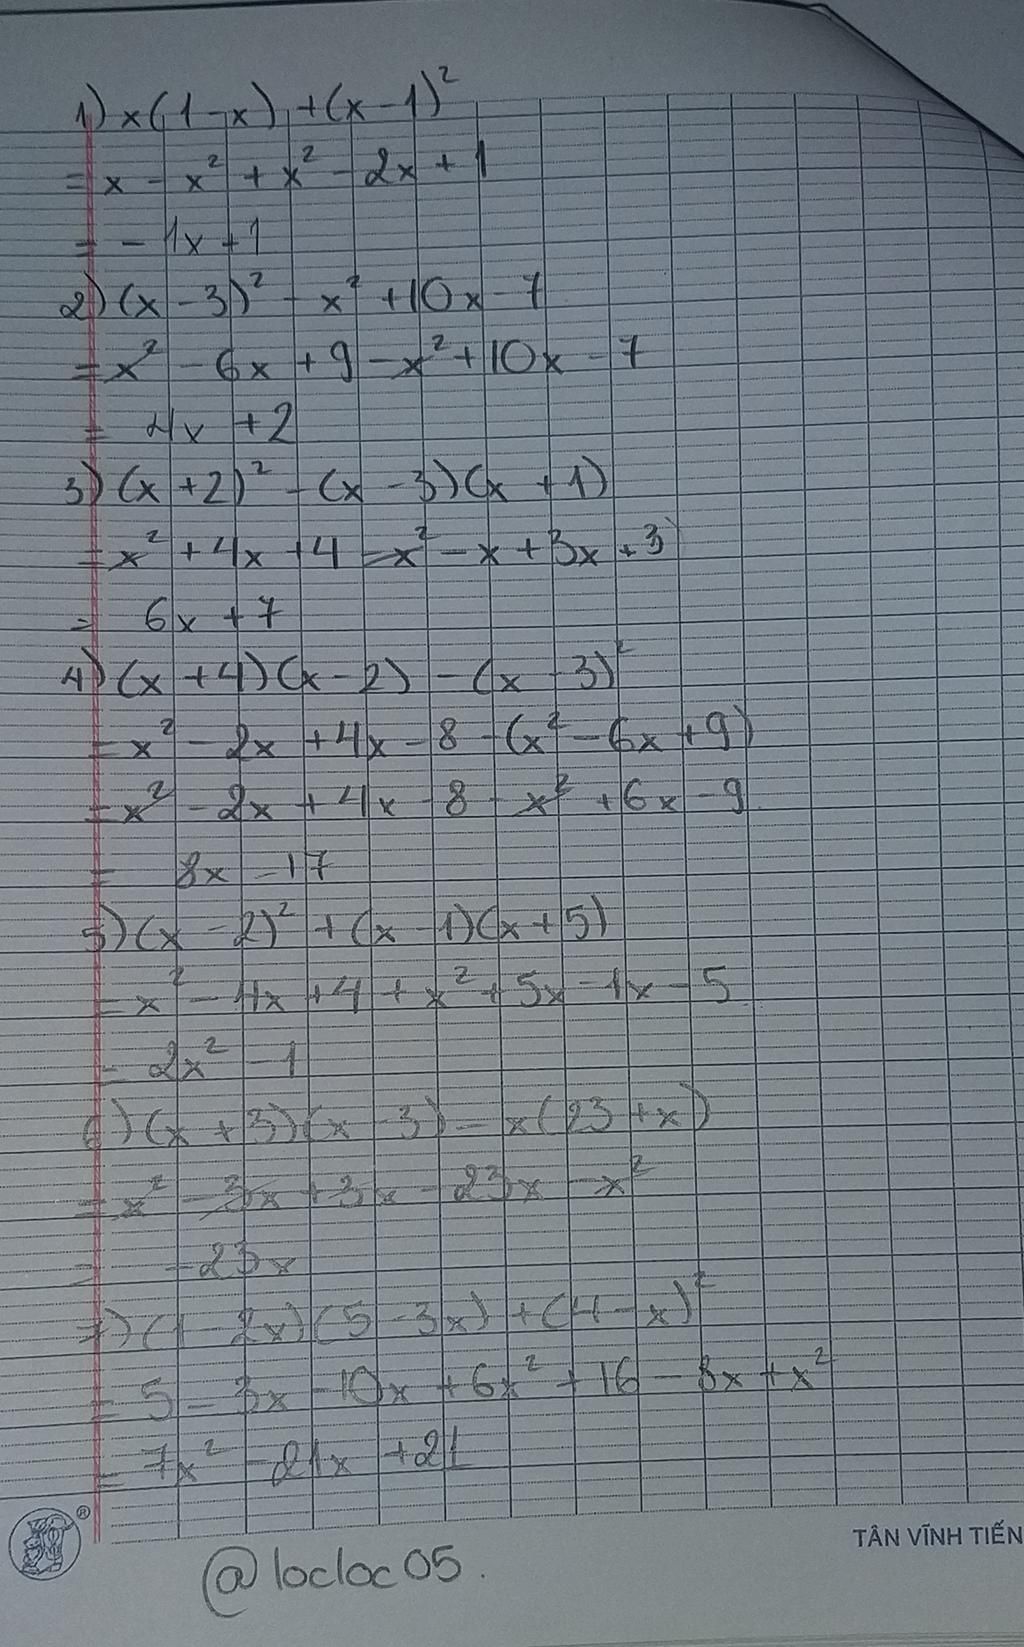 1) x(1-x) + (x-1)²
= x - x² + x² - 2x + 1
= - 1x + 1
2) (x - 3)² - x² + 10x - 7
= x² - 6x + 9 - x² + 10x - 7
= 4x + 2
3) (x + 2)² - (x - 3)(x + 1)
= x² + 4x + 4 - x² - x + 3x + 3
= 6x + 7
4) (x + 4)(x - 2) - (x - 3)²
= x² - 2x + 4x - 8 - (x² - 6x + 9)
= x² - 2x + 4x - 8 - x² + 6x - 9
= 8x - 17
5) (x - 2)² + (x - 1)(x + 5)
= x² - 4x + 4 + x² + 5x - 1x - 5
= 2x² - 1
6) (x + 3)(x - 3) - x(23 + x)
= x² - 3x + 3x - 23x - x²
= - 23x
7) (1 - 2x)(5 - 3x) + (4 - x)²
= 5 - 3x - 10x + 6x² + 16 - 8x + x²
= 7x² - 21x + 21
®
TÂN VĨNH TIẾN
@locloc05.